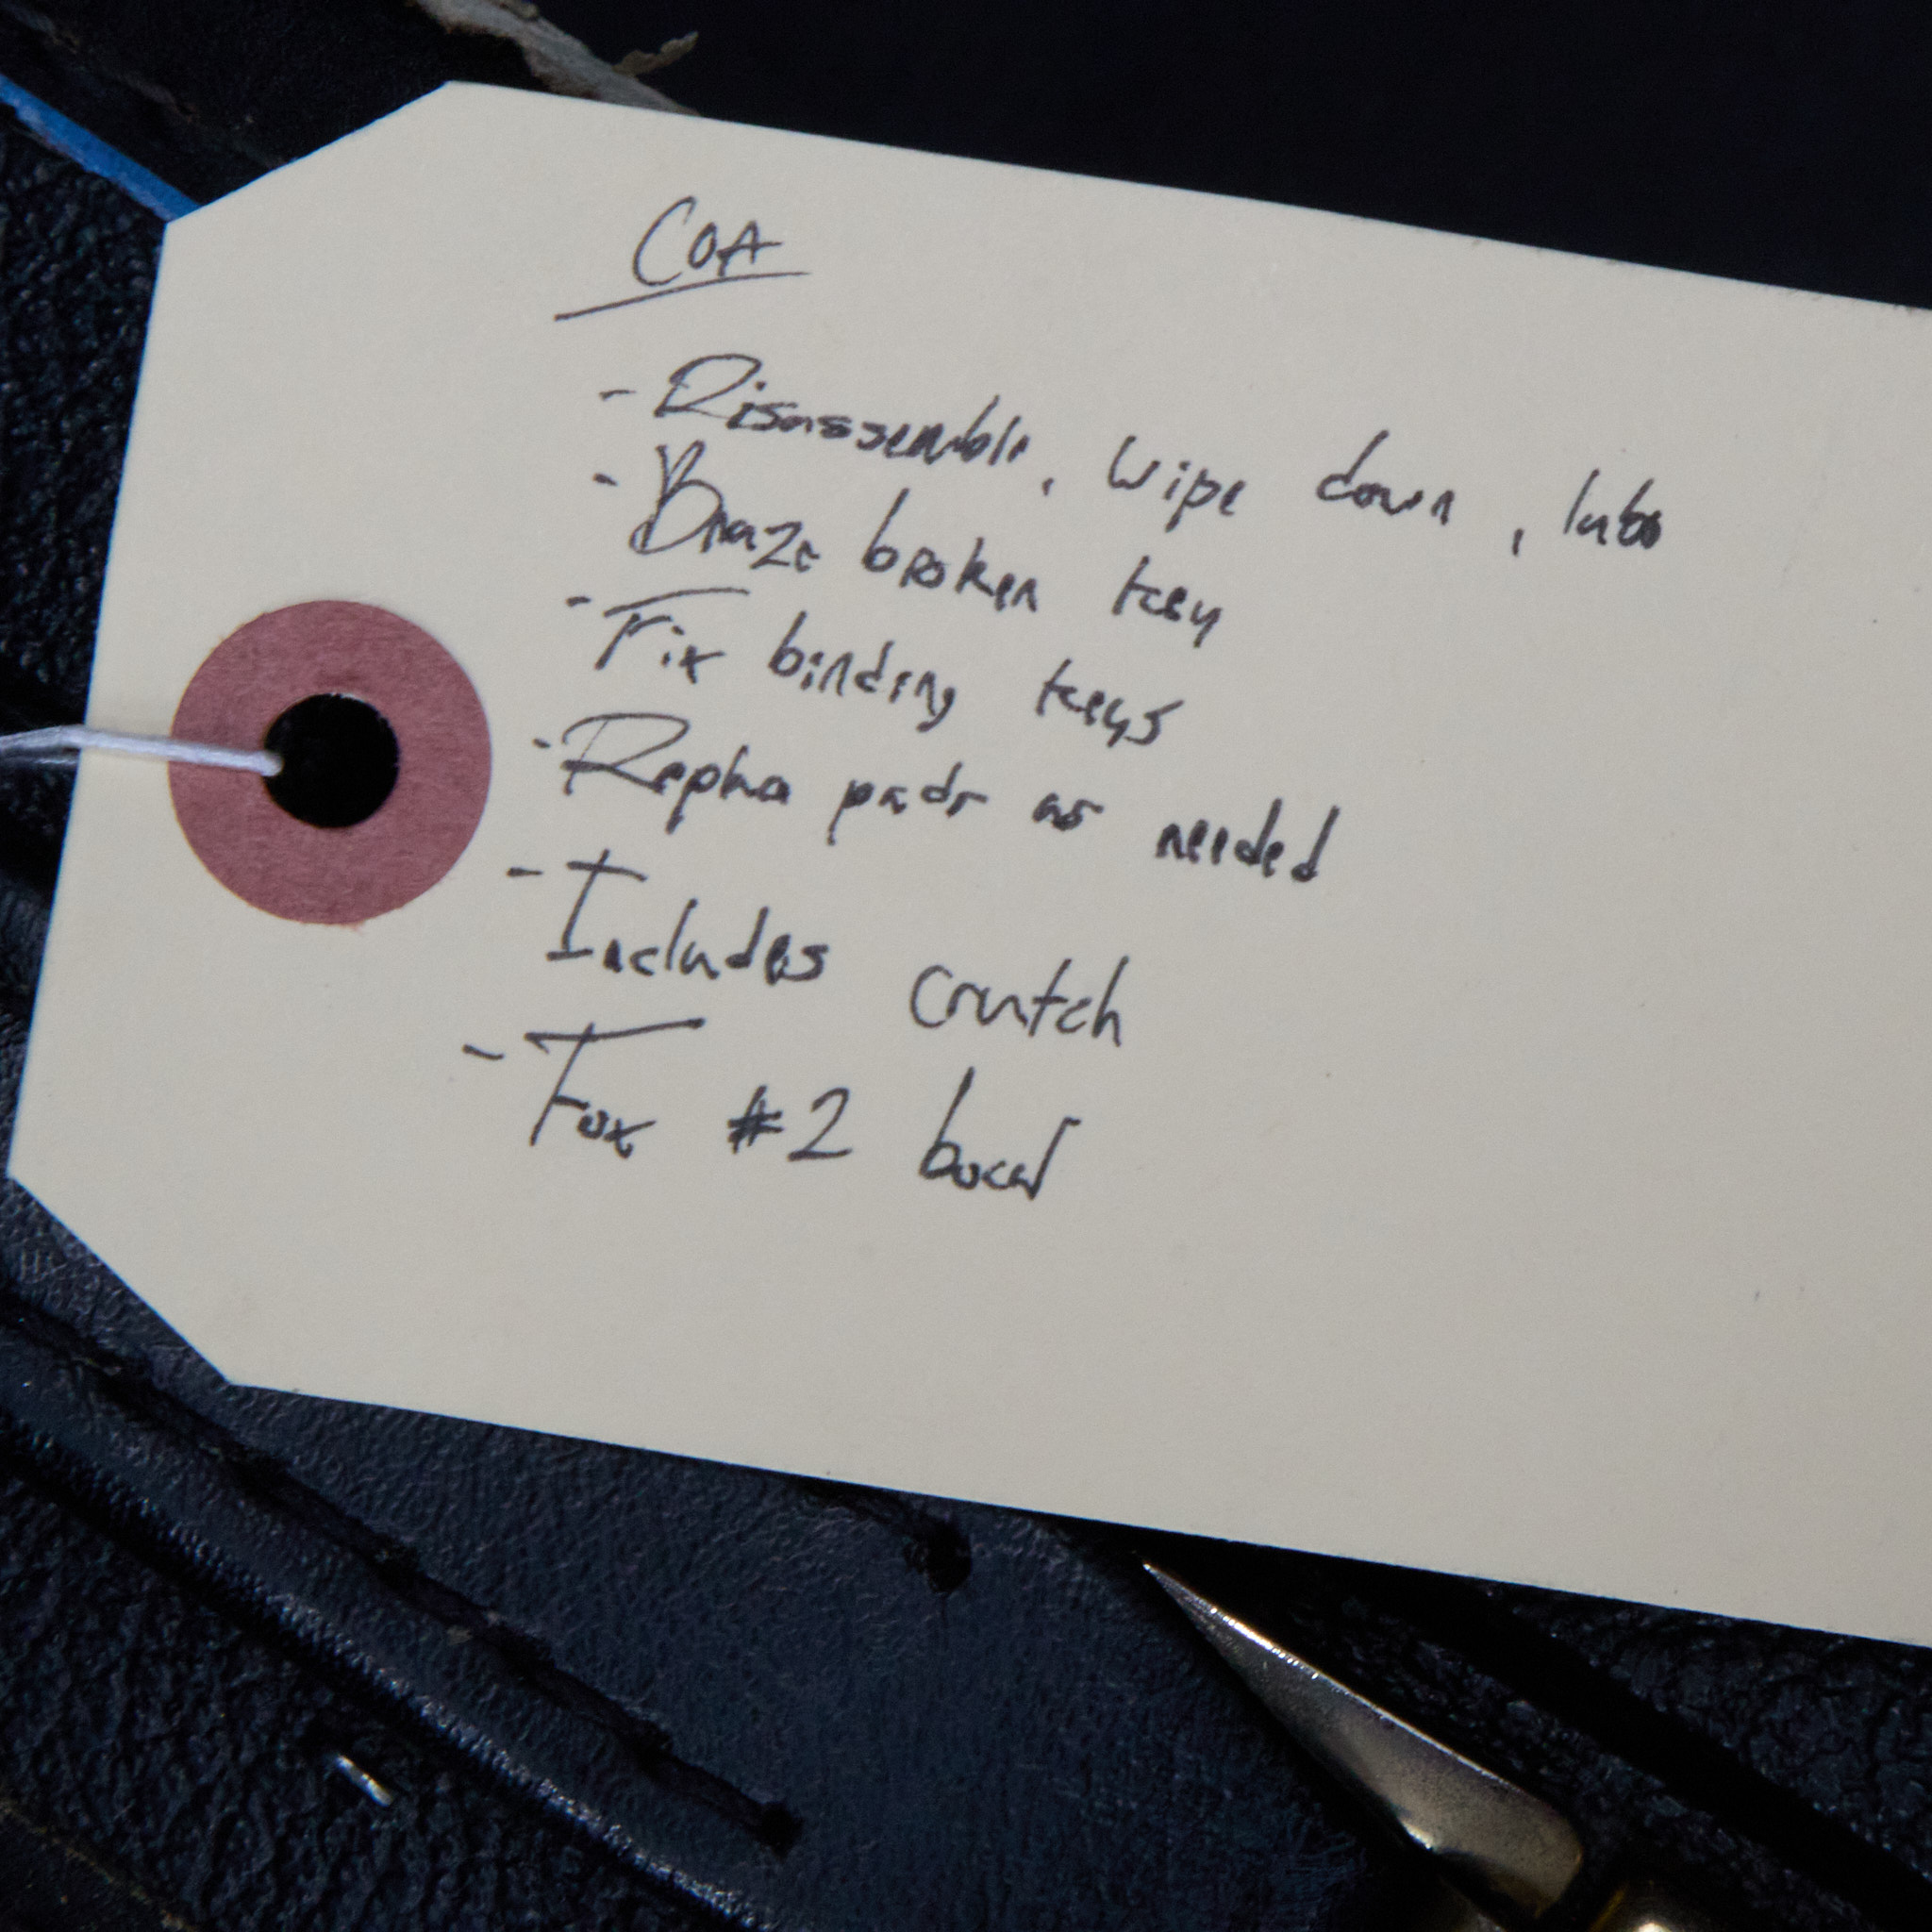 COA
- Disassemble, wipe down, lube
- Braze broken key
- Fix binding keys
- Replace pads as needed
- Includes crutch
- Fox #2 bocal